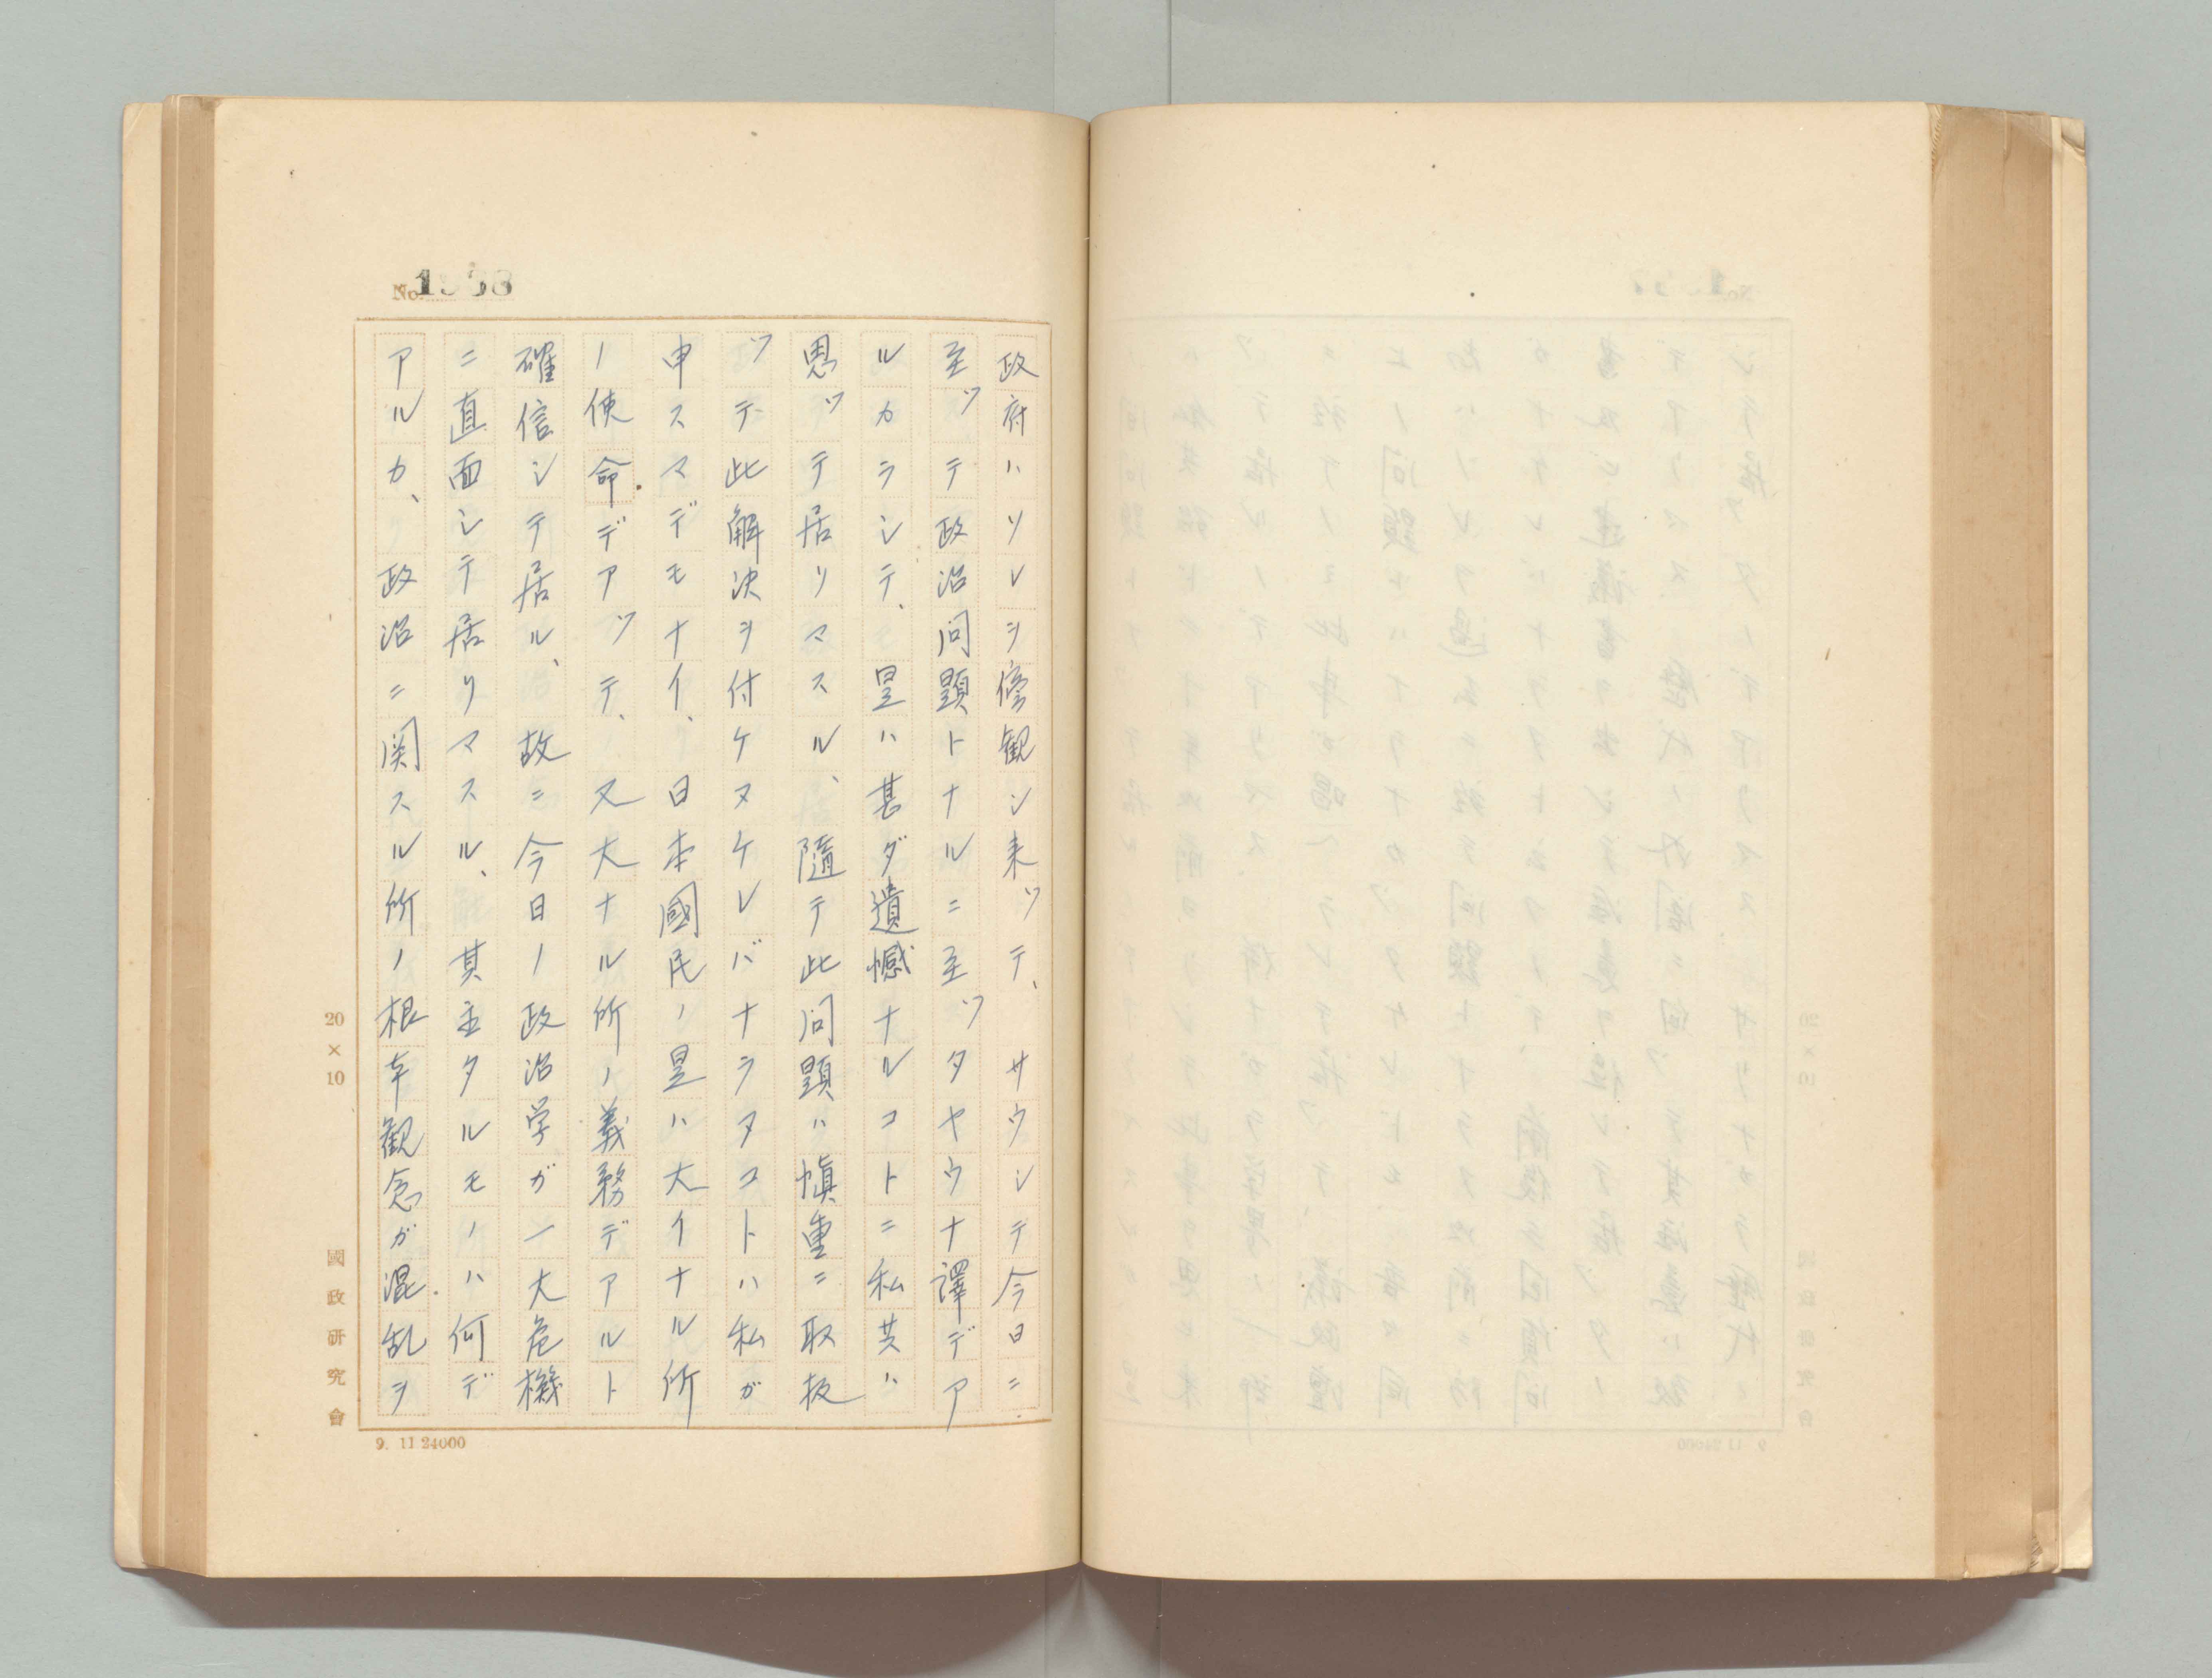 No. 1938
政府ハソレヲ傍観シ来ッテ、サウシテ今日ニ
至ッテ政治問題トナルニ至ッタヤウナ譯デア
ルカラシテ、是ハ甚ダ遺憾ナルコトニ私共ハ
思ッテ居リマスル、隨テ此問題ハ慎重ニ取扱
ッテ此解決ヲ付ケヌケレバナラヌコトハ私ガ
申スマデモナイ、日本國民ノ是ハ大イナル所
ノ使命デアッテ、又大ナル所ノ義務デアルト
確信シテ居ル、故ニ今日ノ政治学ガ一大危機
ニ直面シテ居リマスル、其主タルモノハ何デ
アルカ、政治ニ関スル所ノ根本観念ガ混乱ヲ
20×10
國政研究會
9. 11 24000